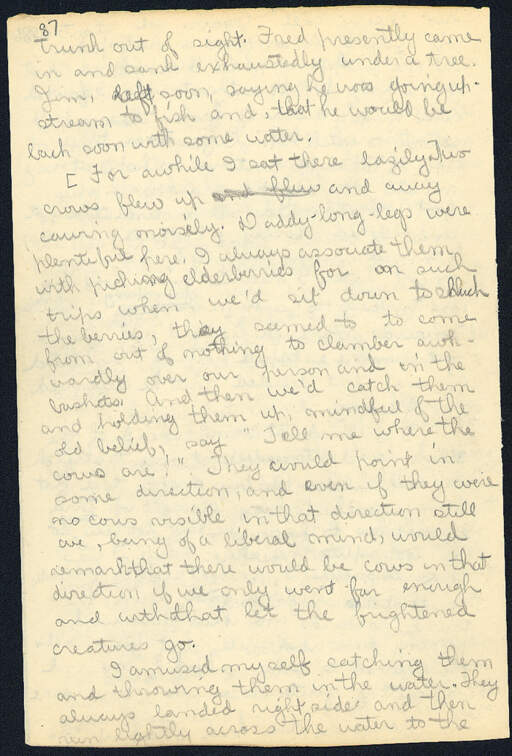 87
trunk out of sight. Fred presently came
in and sank exhaustedly under a tree.
Jim, left soon, saying he was going up-
stream to fish and, that he would be
back soon with some water.
[ For awhile I sat there lazily. Two
crows flew up and flew and away
cawing noisily. Daddy-long-legs were
plentiful here. I always associate them
with picking elderberries for on such
trips when we'd sit down to shuck
the berries, they seemed to to come
from out of nothing to clamber awk-
wardly over our person and in the
baskets. And then we'd catch them
and holding them up, mindful of the
old belief, say "Tell me where the
cows are!" They would point in
some direction, and even if they were
no cows visible in that direction still
we, being of a liberal mind, would
remark that there would be cows in that
direction if we only went far enough
and with that let the frightened
creatures go.
I amused myself catching them
and throwing them in the water. They
always landed right side and then
run lightly across the water to the